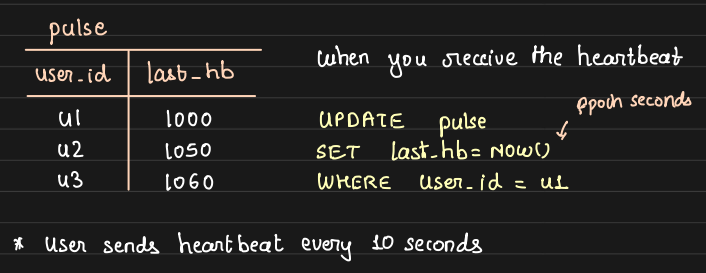 pulse
user_id last_hb
u1 1000
u2 1050
u3 1060
When you receive the heartbeat
epoch seconds
UPDATE pulse
SET last_hb = NOW()
WHERE user_id = u1
* User sends heartbeat every 10 seconds